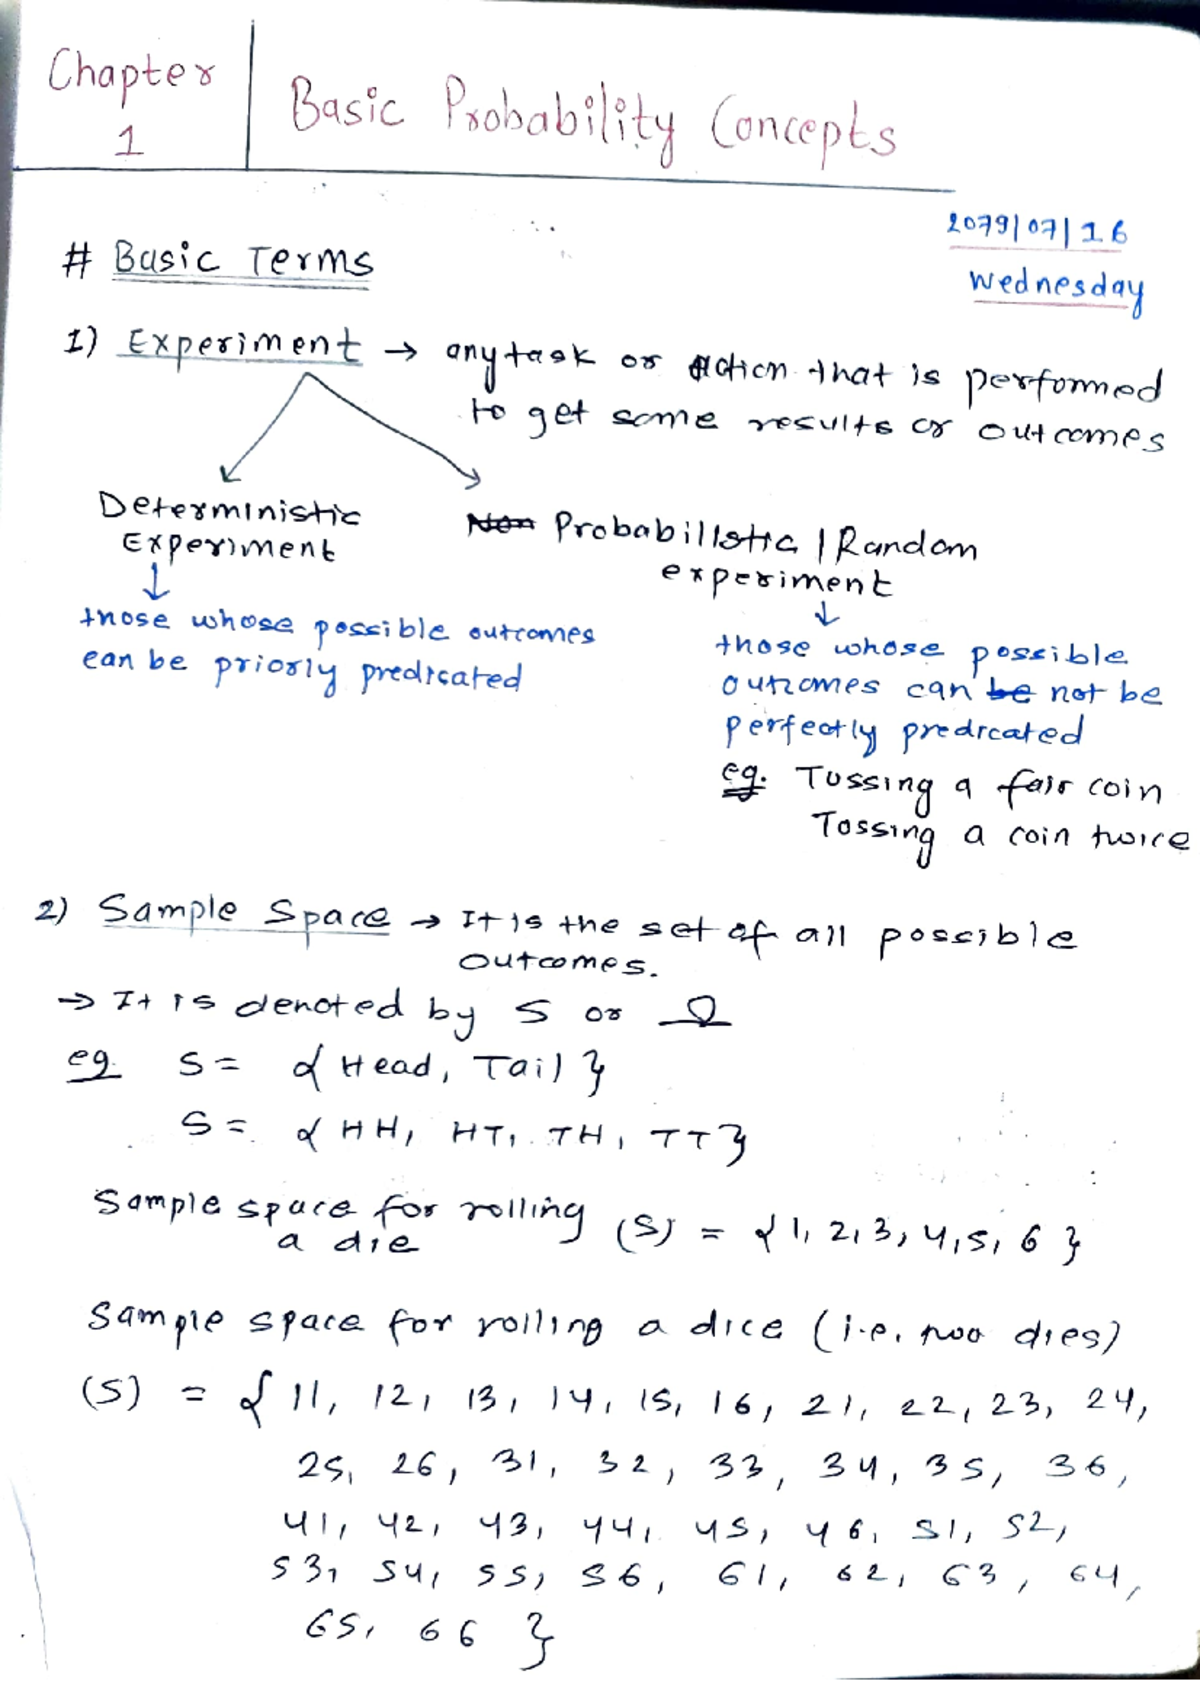 Chapter
1
Basic Probability Concepts
2079/07/16
Wednesday
# Basic Terms
1) Experiment → any task or Action that is performed
to get some results or outcomes
Deterministic
Experiment
↓
those whose possible outcomes
can be priorly predicated
Non Probabillstic / Random
experiment
↓
those whose possible
outcomes can be not be
perfectly predicated
eg. Tossing a fair coin
Tossing a coin twice
2) Sample Space → It is the set of all possible
outcomes.
→ It is denoted by S or Ω
eg. S = { Head, Tail }
S = { HH, HT, TH, TT }
Sample space for rolling
a die
(S) = { 1, 2, 3, 4, 5, 6 }
Sample space for rolling a dice (i.e. two dies)
(S) = { 11, 12, 13, 14, 15, 16, 21, 22, 23, 24,
25, 26, 31, 32, 33, 34, 35, 36,
41, 42, 43, 44, 45, 46, 51, 52,
53, 54, 55, 56, 61, 62, 63, 64,
65, 66 }